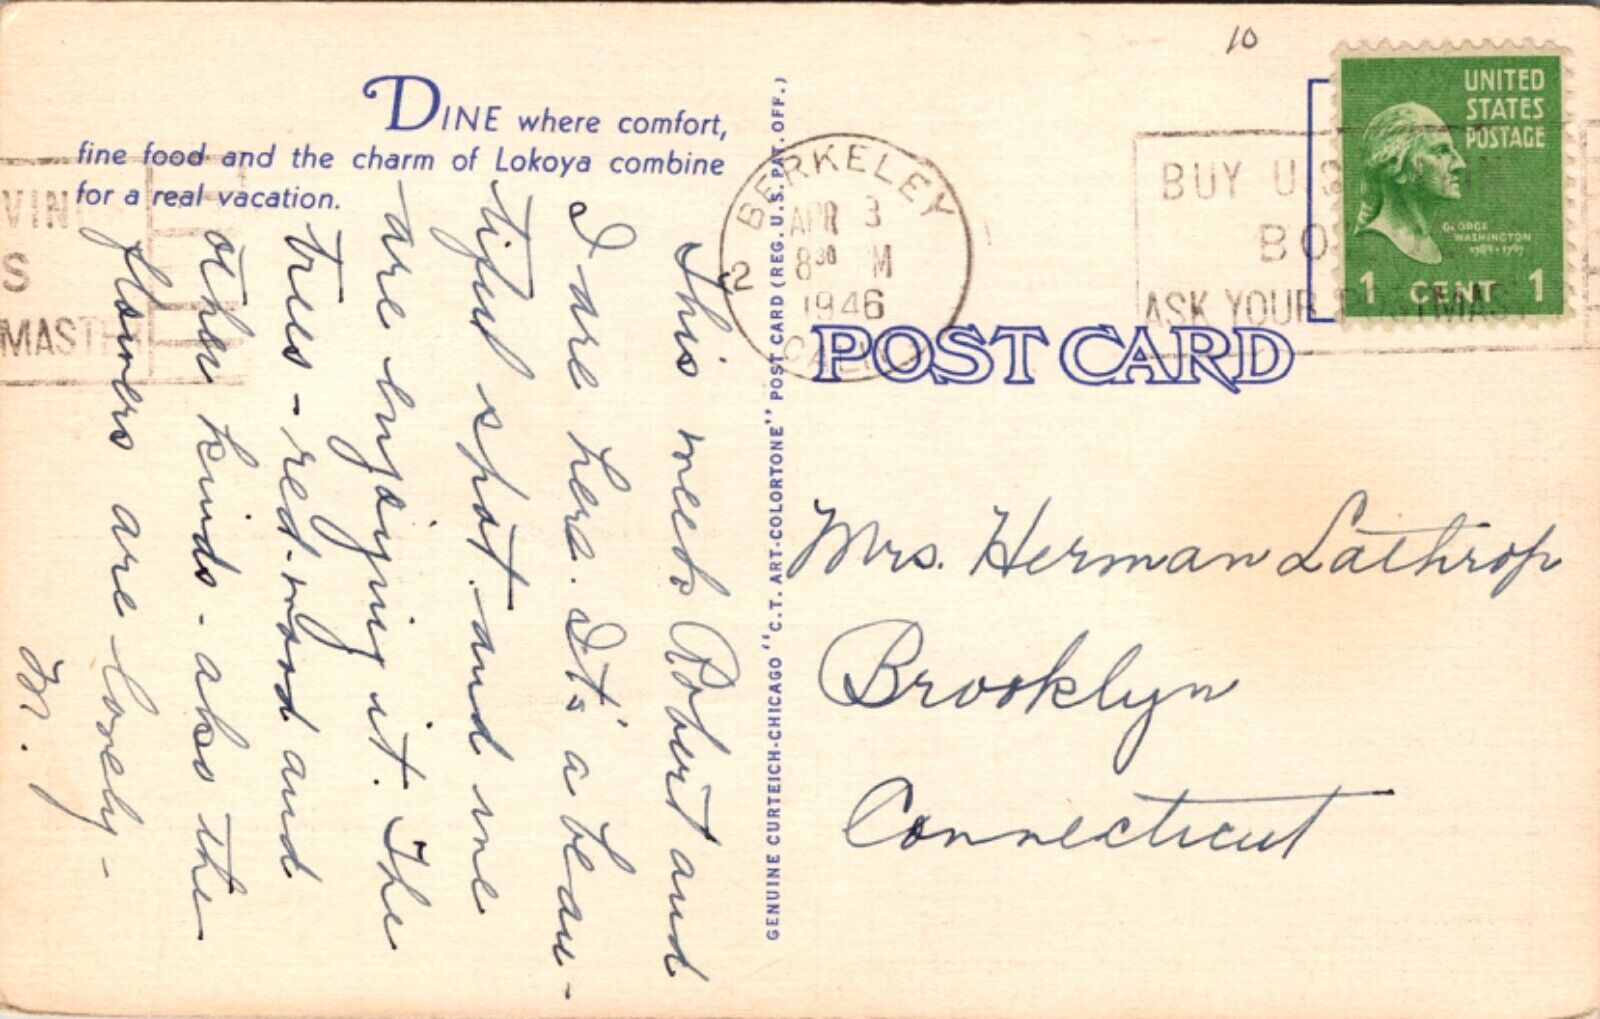 10
DINE where comfort,
fine food and the charm of Lokoya combine
for a real vacation.
VIN
S
MAST
BERKELEY
APR 3
8 30 M
2
1946
CALIF
BUY U.S.
BO
ASK YOUR POSTMAST
UNITED
STATES
POSTAGE
GEORGE
WASHINGTON
1789-1797
1 CENT 1
POST CARD
GENUINE CURTEICH-CHICAGO "C.T. ART-COLORTONE" POST CARD (REG. U.S. PAT. OFF.)
This week Robert and
I are here. It's a beau-
tiful spot and we
are enjoying it. The
trees - red-wood and
other kinds - also the
flowers are lovely -
Mrs. Herman Lathrop
Brooklyn
Connecticut